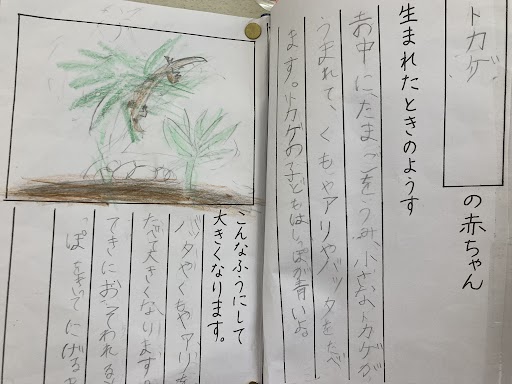 トカゲ
の赤ちゃん
生まれたときのようす
土の中に、たまごをうみ、小さなトカゲが
うまれて、くもやアリやバッタをたべ
ます。トカゲの子どもはしっぽが青いよ。
こんなふうにして
大きくなります。
バッタやくもやアリを
たべ大きくなります。
てきにおそわれると
っぽをきってにげる